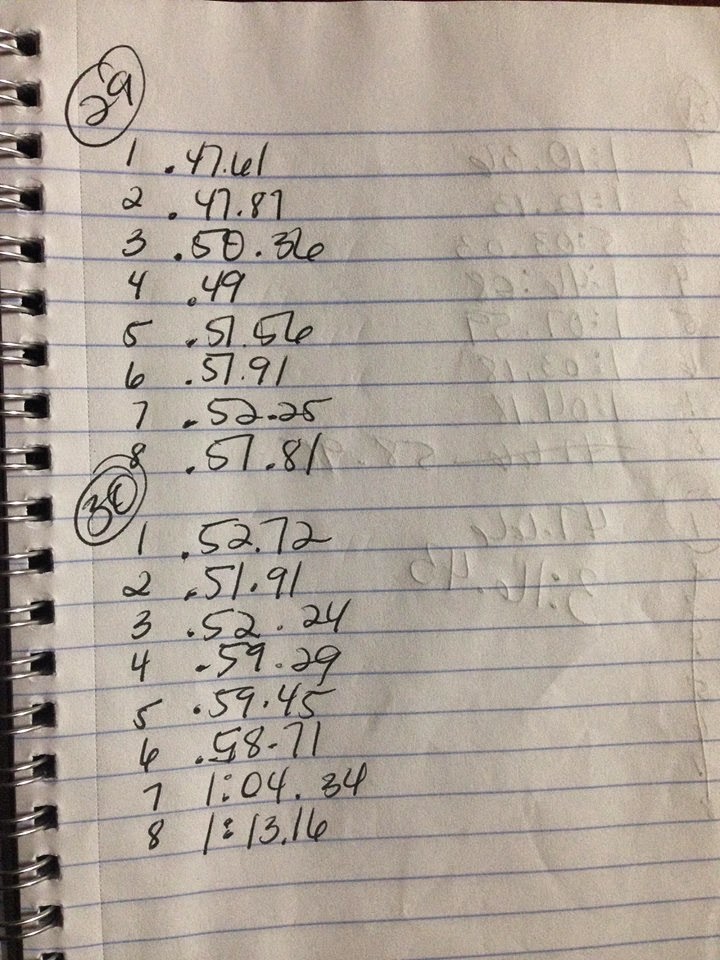 29
1 .47.61
2 .47.87
3 .50.36
4 .49
5 .51.56
6 .51.91
7 .52.25
8 .51.81
30
1 .52.72
2 .51.91
3 .52.24
4 .59.29
5 .59.45
6 .58.71
7 1:04.34
8 1:13.16